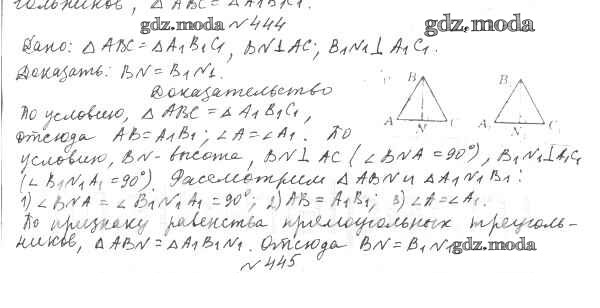 гольников, △ABC = △A1B1C1.
gdz.moda № 444 gdz.moda
Дано: △ABC = △A1B1C1, BN⊥AC; B1N1⊥A1C1.
Доказать: BN = B1N1.
Доказательство
По условию, △ABC = △A1B1C1,
отсюда AB = A1B1; ∠A = ∠A1. По
B B1
A N C A1 N1 C1
условию, BN - высота, BN⊥AC (∠BNA = 90°), B1N1⊥A1C1
(∠B1N1A1 = 90°). Рассмотрим △ABN и △A1N1B1:
1) ∠BNA = ∠B1N1A1 = 90°; 2) AB = A1B1; 3) ∠A = ∠A1.
По признаку равенства прямоугольных треуголь-
ников, △ABN = △A1B1N1. Отсюда BN = B1N1 gdz.moda
№ 445